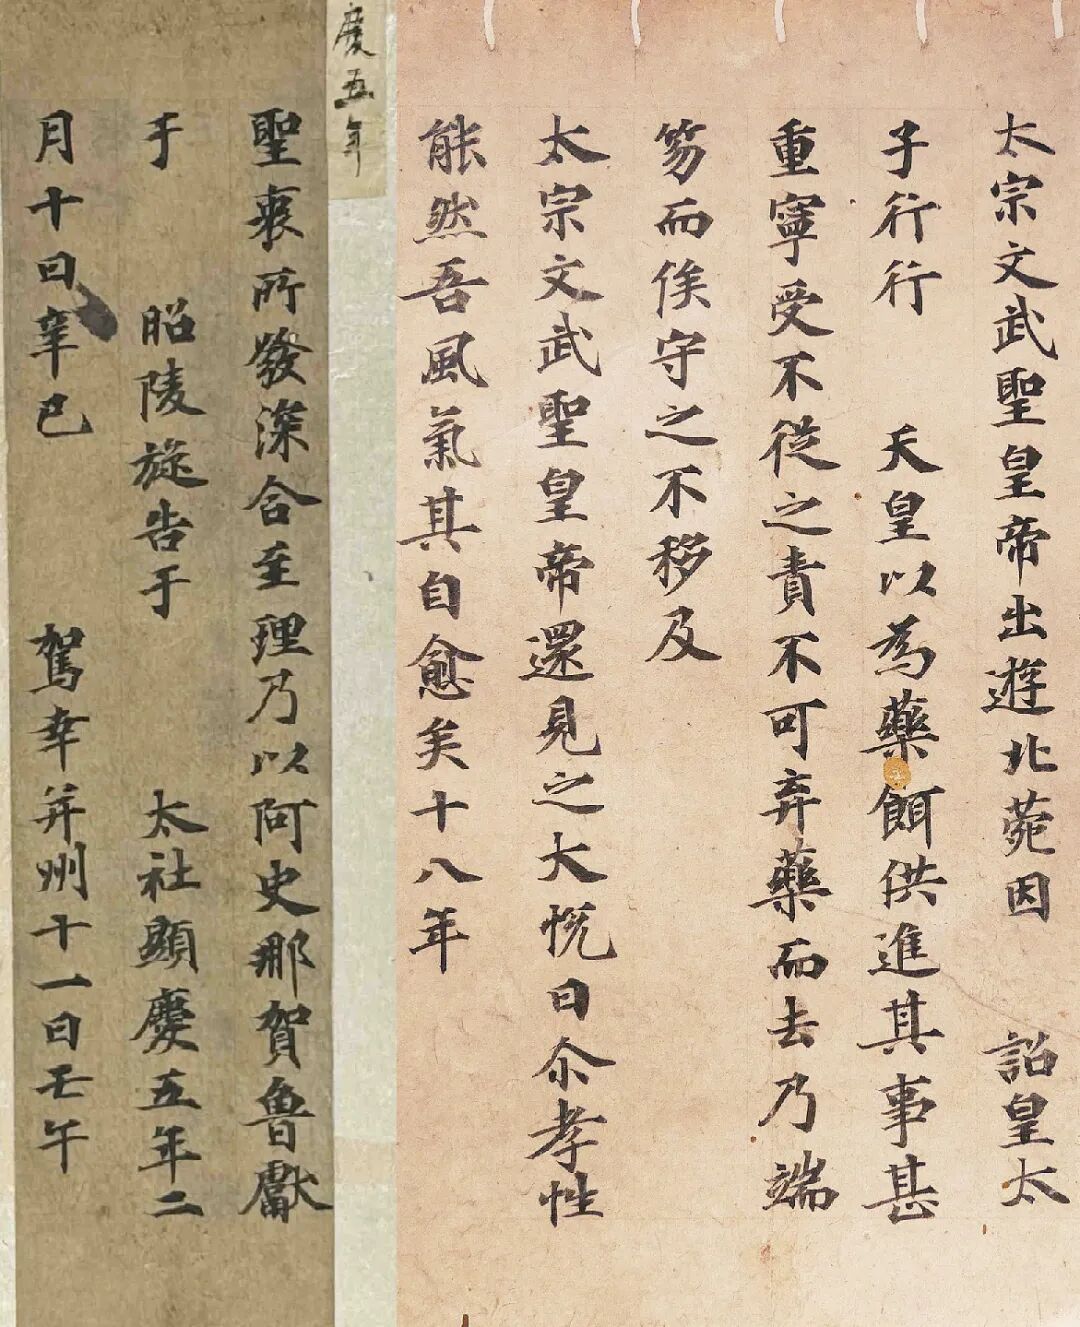 太宗文武聖皇帝出遊北菀因 詔皇太
子行行 天皇以為藥餌供進其事甚
重寧受不從之責不可弃藥而去乃端
笏而俟守之不移及
太宗文武聖皇帝還見之大悅曰尒孝性
能然吾風氣其自愈矣十八年
慶五年
聖衷所發深合至理乃以阿史那賀魯獻
于 昭陵旋告于 太社顯慶五年二
月十日辛巳 駕幸并州十一日壬午